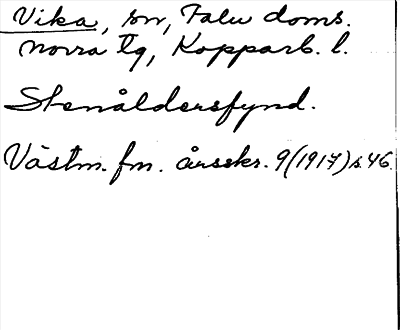 Vika, sn, Falu doms.
norra tg, Kopparb. l.
Stenåldersfynd.
Västm. fm. årsskr. 9(1917)s.46.